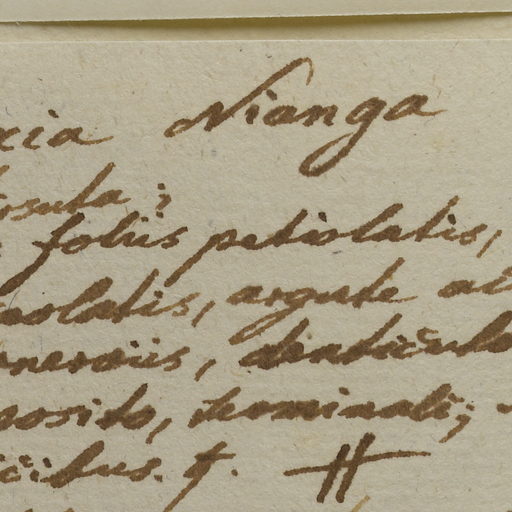 xia Nianga
osuta;
foliis petiolatis,
eolatis, argute ac
enerviis, denticulo
posito, terminali;
icibus. f. H